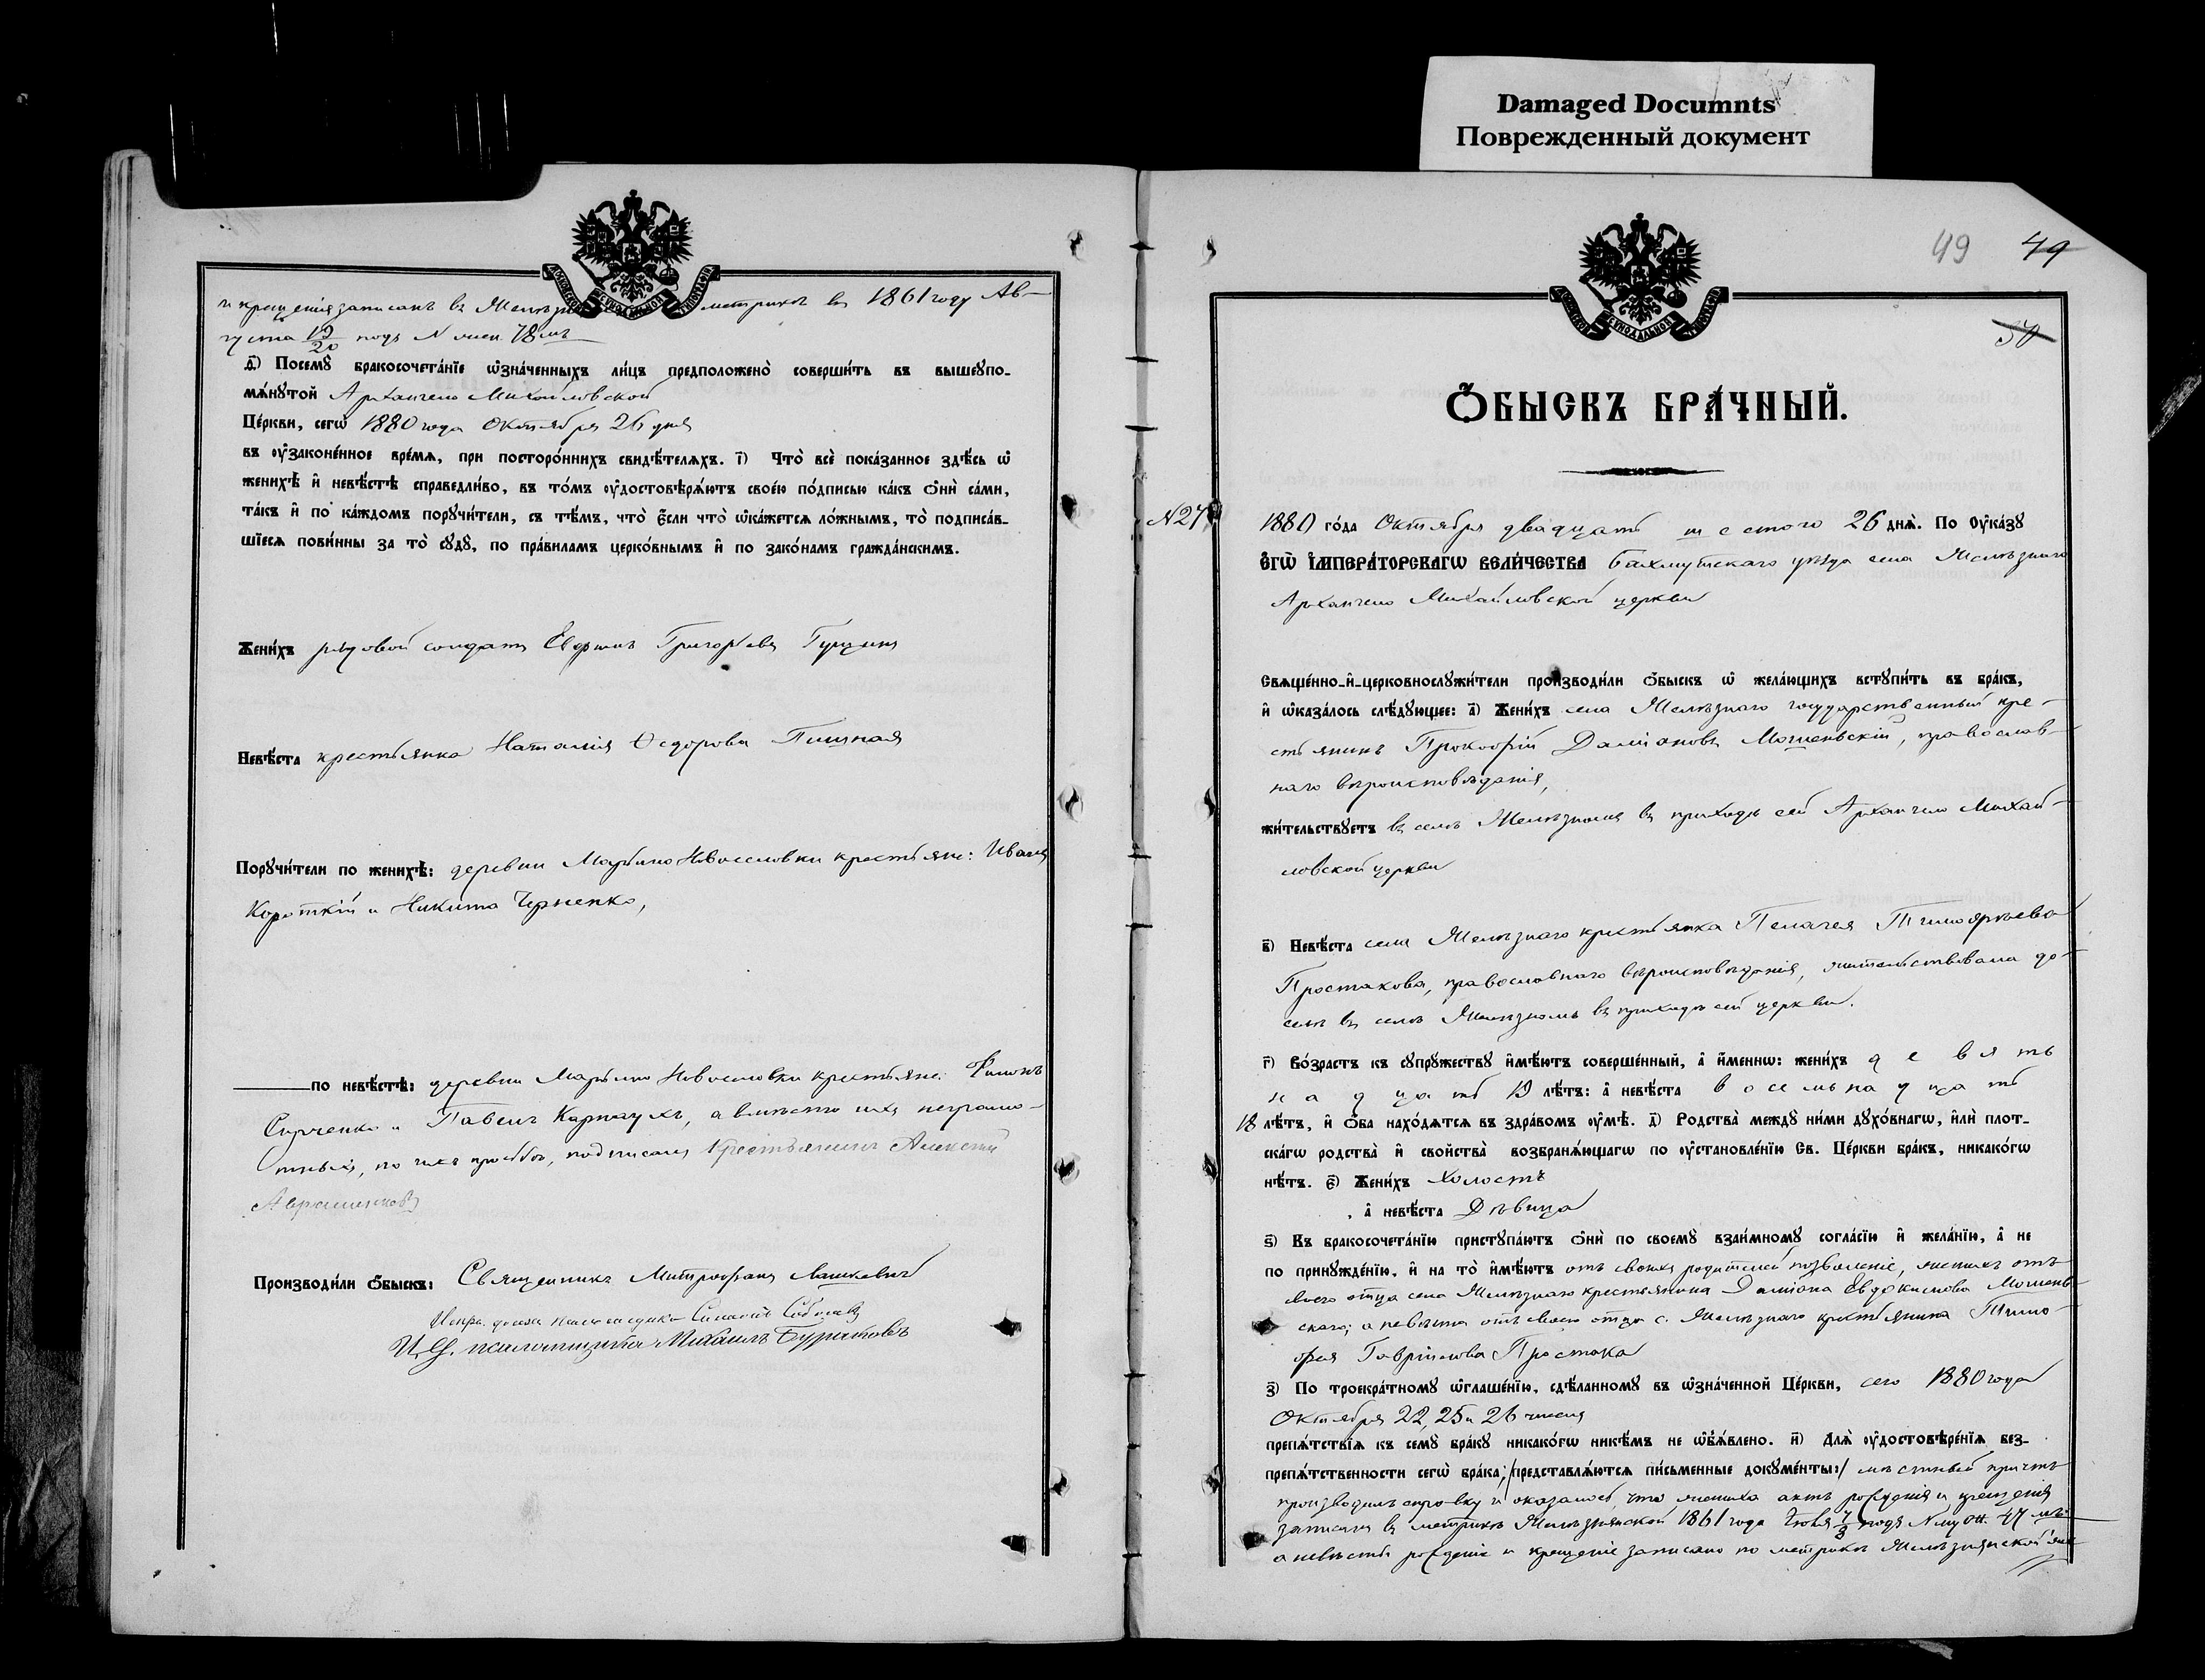 Damaged Documnts
Поврежденный документ
и крещенія записанъ въ метрикѣ въ 1861 году Ав-
густа 19/20 подъ N 78мъ
д҃) Посемꙋ̀ бракосочета́нїе ѡ҆зна́ченныхъ ли́цъ предположено̀ соверши́ть въ вышеꙋпо-
мѧ́нꙋтой Архангело Михайловской
Це́ркви, сегѡ̀ 1880 года Октября 26 дня
въ ᲂу҆законе́нное вре́мѧ, при посторо́ннихъ свидѣ́телѧхъ. і҃) Что̀ всѐ пока́занное здѣ́сь ѡ҆
женихѣ̀ и҆ невѣ́стѣ справедли́во, въ то́мъ ᲂу҆достовѣрѧ́ютъ свое́ю по́дписью ка́къ ѻ҆нѝ са́ми,
та́къ и҆ по ка́ждомъ порꙋчи́тели, съ тѣ́мъ, что̀ є҆́сли что̀ ѡ҆ка́жетсѧ ло́жнымъ, то̀ подписа́в-
шїесѧ пови́нны за то̀ сꙋдꙋ̀, по пра́виламъ церко́внымъ и҆ по зако́намъ гражда́нскимъ.
Жени́хъ рядовой солдатъ Евфимъ Григорьевъ Гущинъ
Невѣ́ста крестьянка Наталія Ѳедорова Пишная
Порꙋчи́тели по женихѣ̀: деревни Марьино Новоселовки крестьяне: Иванъ
Короткій и Никита Черненко,
по невѣ́стѣ: деревни Марьино Новоселовки крестьяне: Филонъ
и Павелъ Карнаухъ, а вмѣсто ихъ неграмо-
тныхъ, по ихъ просьбѣ, подписалъ Крестьянинъ Алексѣй
Авраменковъ
Производи́ли ѻ҆́быскъ: Священникъ Митрофанъ Лашкевичъ
И. д. псаломщика Михаилъ
49 49
50
Ѻ҆́БЫСКЪ БРА́ЧНЫЙ.
N 27
1880 го́да Октября двадцать шестого 26 днѧ̀. По Оу҆ка́зꙋ
Є҆ГѠ̀ І҆МПЕРА́ТОРСКАГѠ ВЕЛИ́ЧЕСТВА Бахмутскаго уѣзда села Желѣзнаго
Архангело Михайловской церкви
Свѧще́нно-и҆-церковнослꙋжи́тели произво́дили ѻ҆́быскъ ѡ҆ жела́ющихъ встꙋпи́ть въ бра́къ,
и҆ ѡ҆каза́лось слѣ́дꙋющее: а҃) Жени́хъ села Желѣзнаго государственный кре-
стьянинъ Прокофій Даміановъ Мошеньскій, православ-
наго вѣроисповѣданія,
жи́тельствꙋетъ въ селѣ Желѣзномъ въ приходѣ сей Архангело Михай-
ловской церкви
в҃) Невѣ́ста села Желѣзнаго крестьянка Пелагея Тимофѣева
Простакова, православнаго вѣроисповѣданія, жительствовала до-
селѣ въ селѣ Желѣзномъ въ приходѣ сей церкви.
г҃) Во́зрастъ къ сꙋпрꙋ́жествꙋ и҆мѣ́ютъ соверше́нный, а҆ и҆́менно: жени́хъ девят-
надцать 19 лѣ́тъ: а҆ невѣ́ста восемьнадцать
18 лѣ́тъ, и҆ ѻ҆́ба нахо́дѧтсѧ въ здра́вомъ ᲂу҆мѣ̀. д҃) Родства̀ междꙋ̀ ни́ми дꙋхо́внагѡ, и҆лѝ плот-
ска́гѡ родства̀ и҆ сво́йства возбранѧ́ющагѡ по ᲂу҆становле́нїю Св. Це́ркви бра́къ, никако́гѡ
нѣ́тъ. є҃) Жени́хъ Холостъ
, а҆ невѣ́ста Дѣвица
ѕ҃) Въ бракосочета́нїю пристꙋпа́ютъ ѻ҆нѝ по своемꙋ̀ взаи́мномꙋ согла́сїю и҆ жела́нїю, а҆ не
по принꙋжде́нїю, и҆ на то̀ и҆мѣ́ютъ отъ своихъ родителей позволеніе, женихъ отъ
своего отца села Желѣзнаго крестьянина Даміана Евдокимова Мошень-
скаго; а невѣста отъ своего отца с. Желѣзнаго крестьянина Тимо-
фея Гаврілова Простака
з҃) По троекра́тномꙋ ѡ҆глаше́нїю, сдѣ́ланномꙋ въ ѡ҆зна́ченной Це́ркви, сего 1880 года
Октября 22, 25 и 26 числа
препѧ́тствїѧ къ семꙋ̀ бра́кꙋ никако́гѡ никѣ́мъ не ѡ҆б̾ѧ́влено. и҃) Длѧ̀ ᲂу҆достовѣре́нїѧ без-
препѧ́тственности сегѡ̀ бра́ка; /представлѧ́ютсѧ пи́сьменные докꙋме́нты:/ мѣстный причтъ
производилъ справку и оказалось, что жениха актъ рожденія и крещенія
записанъ въ метрикѣ Желѣзнянской 1861 года Іюля 7/8 подъ N муж. 47 мъ
а невѣсты рожденіе и крещеніе записано по метрикѣ Желѣзнянской